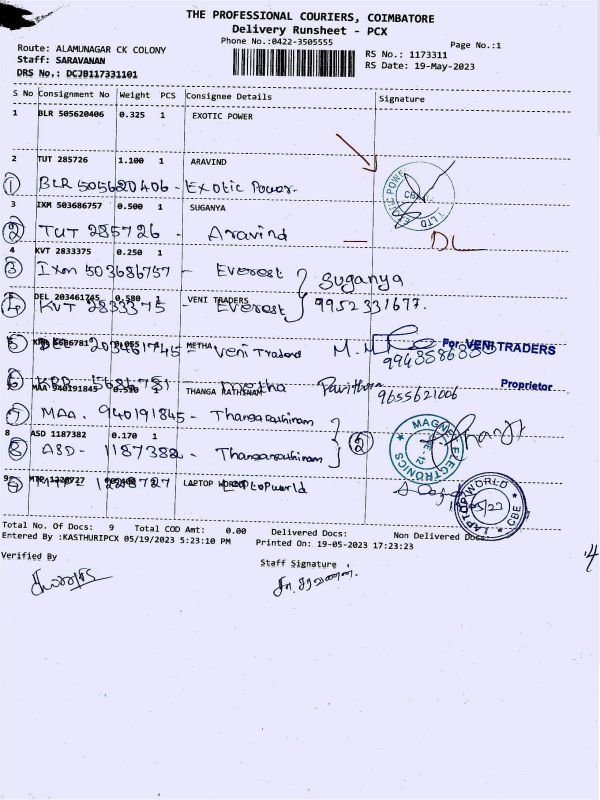 THE PROFESSIONAL COURIERS, COIMBATORE
Delivery Runsheet - PCX
Phone No.:0422-3505555
Page No.:1
Route: ALAMUNAGAR CK COLONY
Staff: SARAVANAN
DRS No.: DCJB117331101
RS No.: 1173311
RS Date: 19-May-2023
S No Consignment No Weight PCS Consignee Details Signature
1 BLR 505620406 0.325 1 EXOTIC POWER
2 TUT 285726 1.100 1 ARAVIND
① BLR 505620406 - Exotic Power.
3 IXM 503686757 0.500 1 SUGANYA
② TUT 285726 - Aravind — DL
4 KVT 2833375 0.250 1
③ Ixm 503686757 - Everest } Suganya
5 DEL 203461745 0.580 1 VENI TRADERS
④ KVT 2833375 - Everest } 9952331677.
METHA
⑤ DEL 203461745 - Veni Traders
For VENI TRADERS
Proprietor
⑥ KRR 5686781 - metha Pavithra 9655621006
MAA 940191845 THANGA RATHSNAM
⑦ MAA. 940191845 - Thangarathinam
8 ASD 1187382 0.170 1
⑧ ASD- 1187382 - Thangarathinam } ②
MAGNET ELECTRONICS
9 LAPTOP WORLD
1228727 Laptopworld
LAPTOP WORLD CBE
Total No. Of Docs: 9 Total COD Amt: 0.00 Delivered Docs: Non Delivered Docs:
Entered By :KASTHURIPCX 05/19/2023 5:23:10 PM Printed On: 19-05-2023 17:23:23
Verified By
Staff Signature